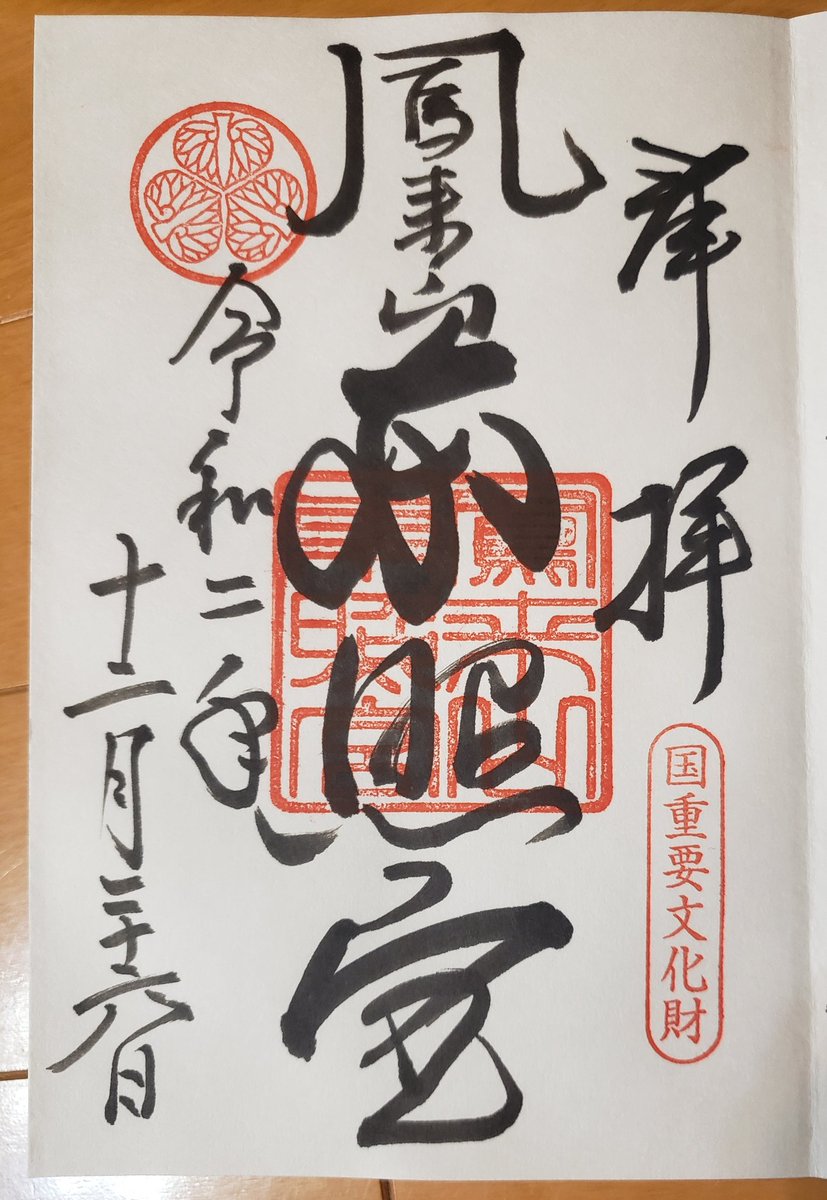 奉拝
国重要文化財
鳳来山東照宮
令和二年
十二月二十六日